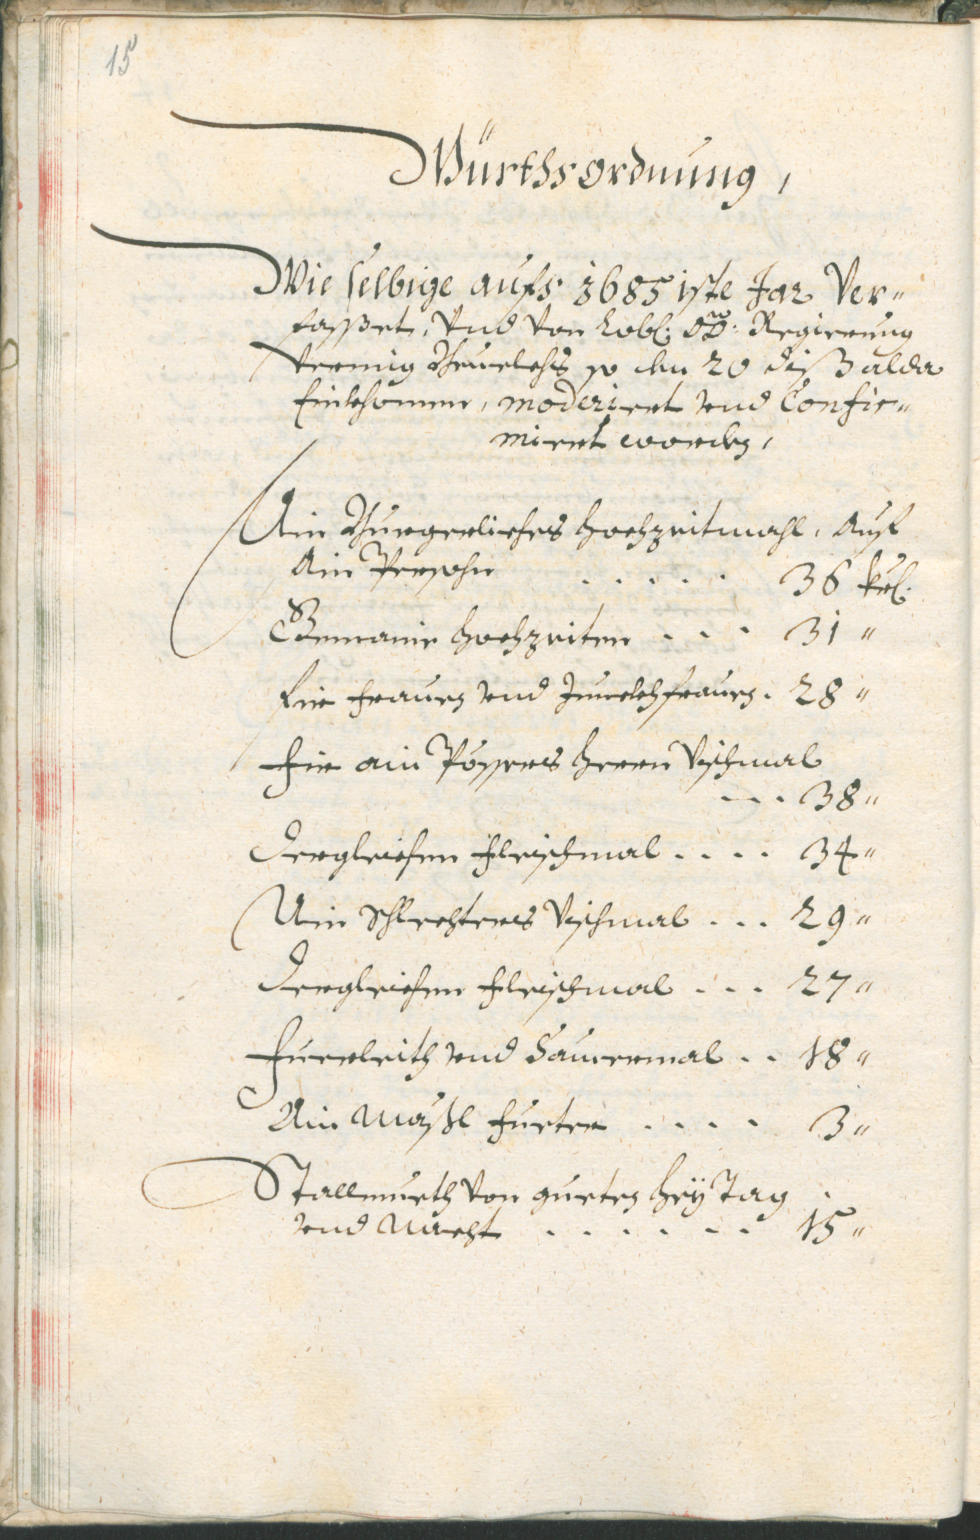 15
Würthsordnung,
Wie selbige aufs 1685iste Jar Ver-
fasset, Vnd Von Lobl: OÖ: Regierung
den 20 diß alda
Einkhomen, moderiret vnd Confir-
miret worden,
Ain Burgerliches Hochzeitmahl, Auf
Ain Persohn . . . . . 36 kr.
Gemaine Hochzeiten . . . 31 "
Fir Frauen vnd Junckhfrauen . 28 "
Fir ain Pesseres Herrn Vischmal
. . . 38 "
Dergleichen Fleischmal . . . . 34 "
Ain Schlechteres Vischmal . . . 29 "
Dergleichen Fleischmal . . . 27 "
Fuerleith vnd Paurenmal . . 18 "
Ain Mässl Fueter . . . . 3 "
Stallmueth Von gueten Heÿ Tag
vnd Nacht . . . . . . 15 "